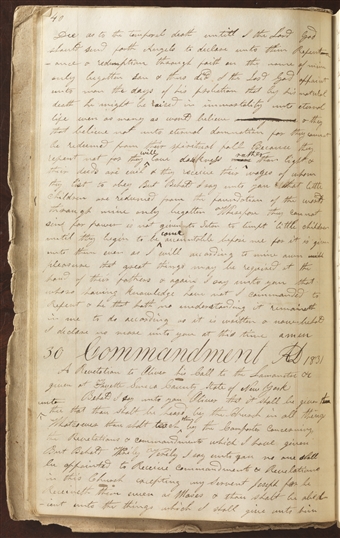 40
Die as to the temporal death untill I the Lord God
should send forth Angels to declare unto them Repentan
-ance & redemption through faith on the name of mine
only begotten son & thus did I the Lord God appoint
unto man the days of his probation that by his natural
death he might be raised in immortality unto eternal
life even as many as would believe & they
that believe not unto eternal damnation for they cannot
be redeemed from their spiritual fall because they
repent not for they will love darkness rather than light &
their deeds are evil & they receive their wages of whom
they list to obey But Behold I say unto you that little
Children are redeemed from the foundation of the world
through mine only begotten Wherefore they cannot
sin for power is not given unto Satan to tempt little children
until they begin to become accountable before me for it is given
unto them even as I will according to mine own
pleasure that great things may be required at the
hand of their fathers & again I say unto you that
whoso having knowledge have not I commanded to
repent & he that hath no understanding it remaineth
in me to do according as it is written & now behold
I declare no more unto you at this time amen
30 Commandment AD 1830
A Revelation to Oliver his Call to the Lamanites &c
given at Fayette Seneca County State of New York
Behold I say unto you Oliver that it shall be given unto
thee that thou shalt be heard by the Church in all things
Whatsoever thou shalt teach them by the Comforter concerning
the Revelations & commandments which I have given
But Behold Verily Verily I say unto you no one shall
be appointed to Receive commandments & Revelations
in this Church excepting my servent Joseph for he
Receiveth them even as Moses & thou shalt be obedi
-ent unto the things which I shall give unto him